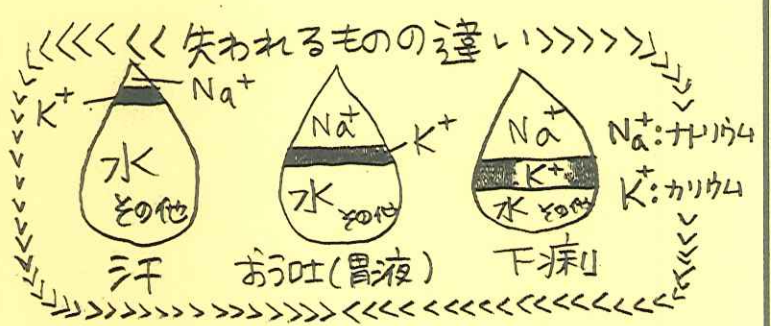 失われるものの違い
Na⁺
K⁺
水
その他
汗
Na⁺
K⁺
水 その他
おう吐(胃液)
Na⁺
K⁺
水 その他
下痢
Na⁺:ナトリウム
K⁺:カリウム